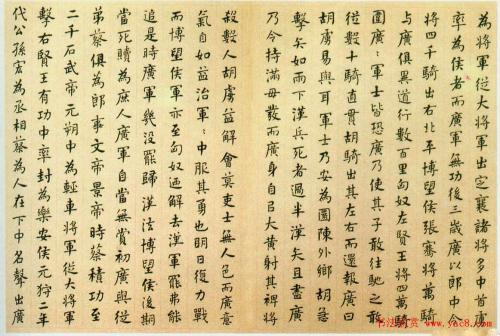 為將軍從大將軍出定襄諸將多中首虜
率為侯者而廣軍無功後三歲廣以郎中令
將四千騎出右北平博望侯張騫將萬騎
与廣俱異道行數百里匈奴左賢王將四萬騎
圍廣：軍士皆恐廣乃使其子敢往馳之敢
從數十騎直貫胡騎出其左右而還報廣曰
胡虜易與耳軍士乃安為圜陳外鄉胡急
擊矢如雨下漢兵死者過半漢矢且盡廣
乃令持滿毋發而廣身自以大黃射其裨將
殺數人胡虜益解會莫吏士無人色而廣意
氣自如益治軍：中服其勇也明日復力戰
而博望侯軍亦至匈奴迺解去漢軍罷弗能
追是時廣軍幾沒罷歸漢法博望侯後期
當死贖為庶人廣軍自當無賞初廣與從
弟蔡俱為郎事文帝景帝時蔡積功至
二千石武帝元朔中為輕車將軍從大將軍
擊右賢王有功中率封為樂安侯元狩二年
代公孫弘為丞相蔡為人在下中名聲出廣